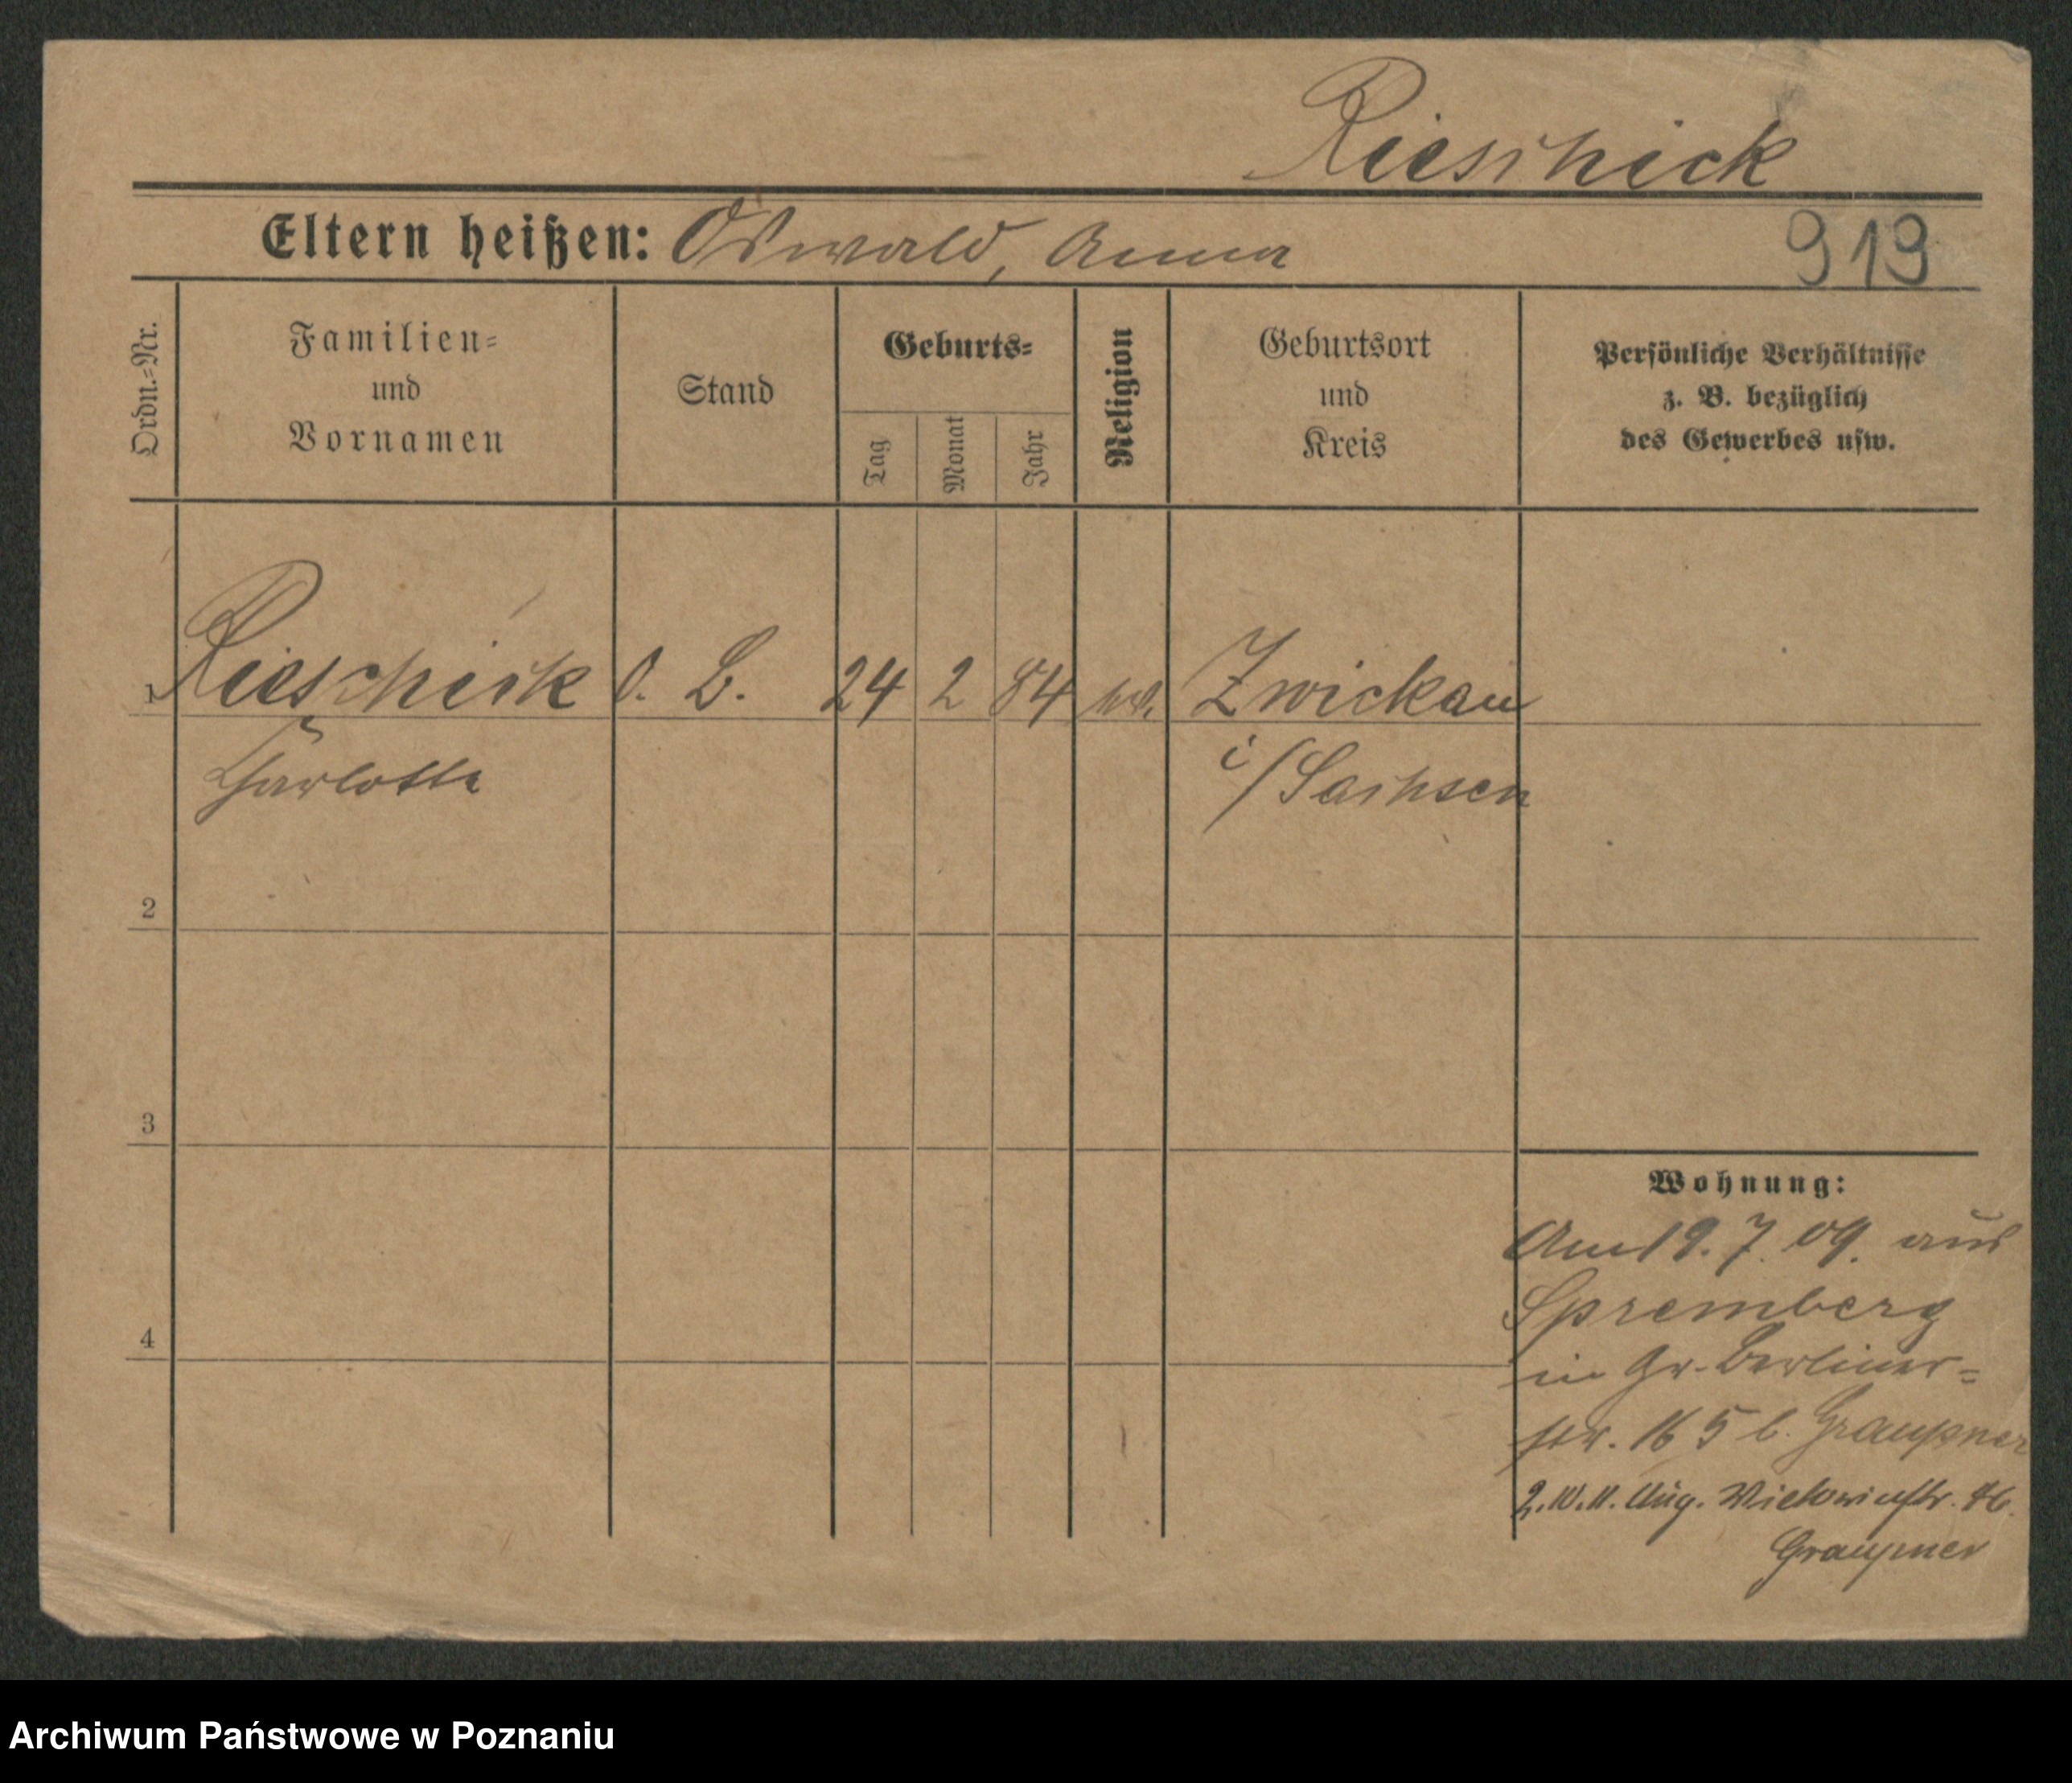 Rieschick
Eltern heißen: Oswald, Anna
919
Ordn.=Nr.
Familien=
und
Vornamen
Stand
Geburts=
Tag
Monat
Jahr
Religion
Geburtsort
und
Kreis
Persönliche Verhältnisse
z. B. bezüglich
des Gewerbes usw.
1 Rieschick O. B. 24 2 84 Zwickau
Charlotte i/Sachsen
2
3
Wohnung:
Am 19. 7. 09. aus
Spremberg
4
in Gr. Berliner=
str. 165 b. Graupner
2. W. U. Aug. Victoriastr. 46.
Graupner
Archiwum Państwowe w Poznaniu